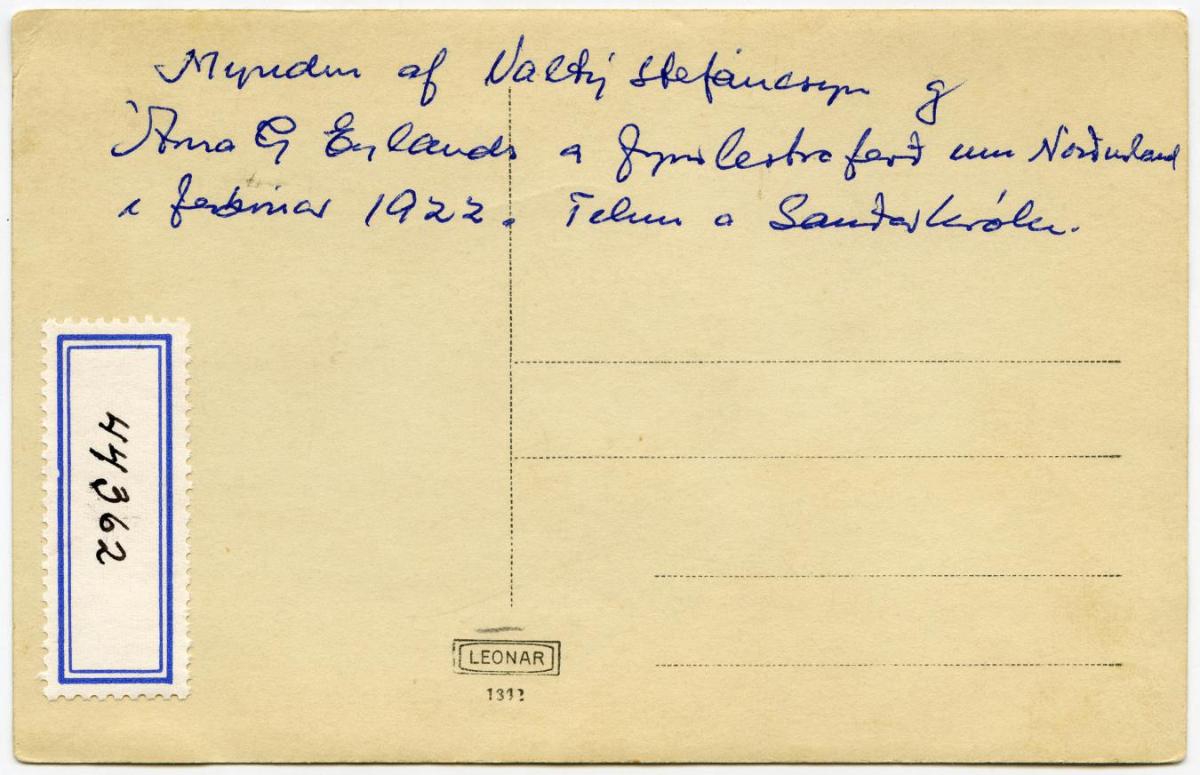 Myndin af Valtý Stefánssyni og
Árna G Eylands á fyrirlestraferð um Norðurland
í febrúar 1922. Tekin á Sauðárkróki.
44362
LEONAR